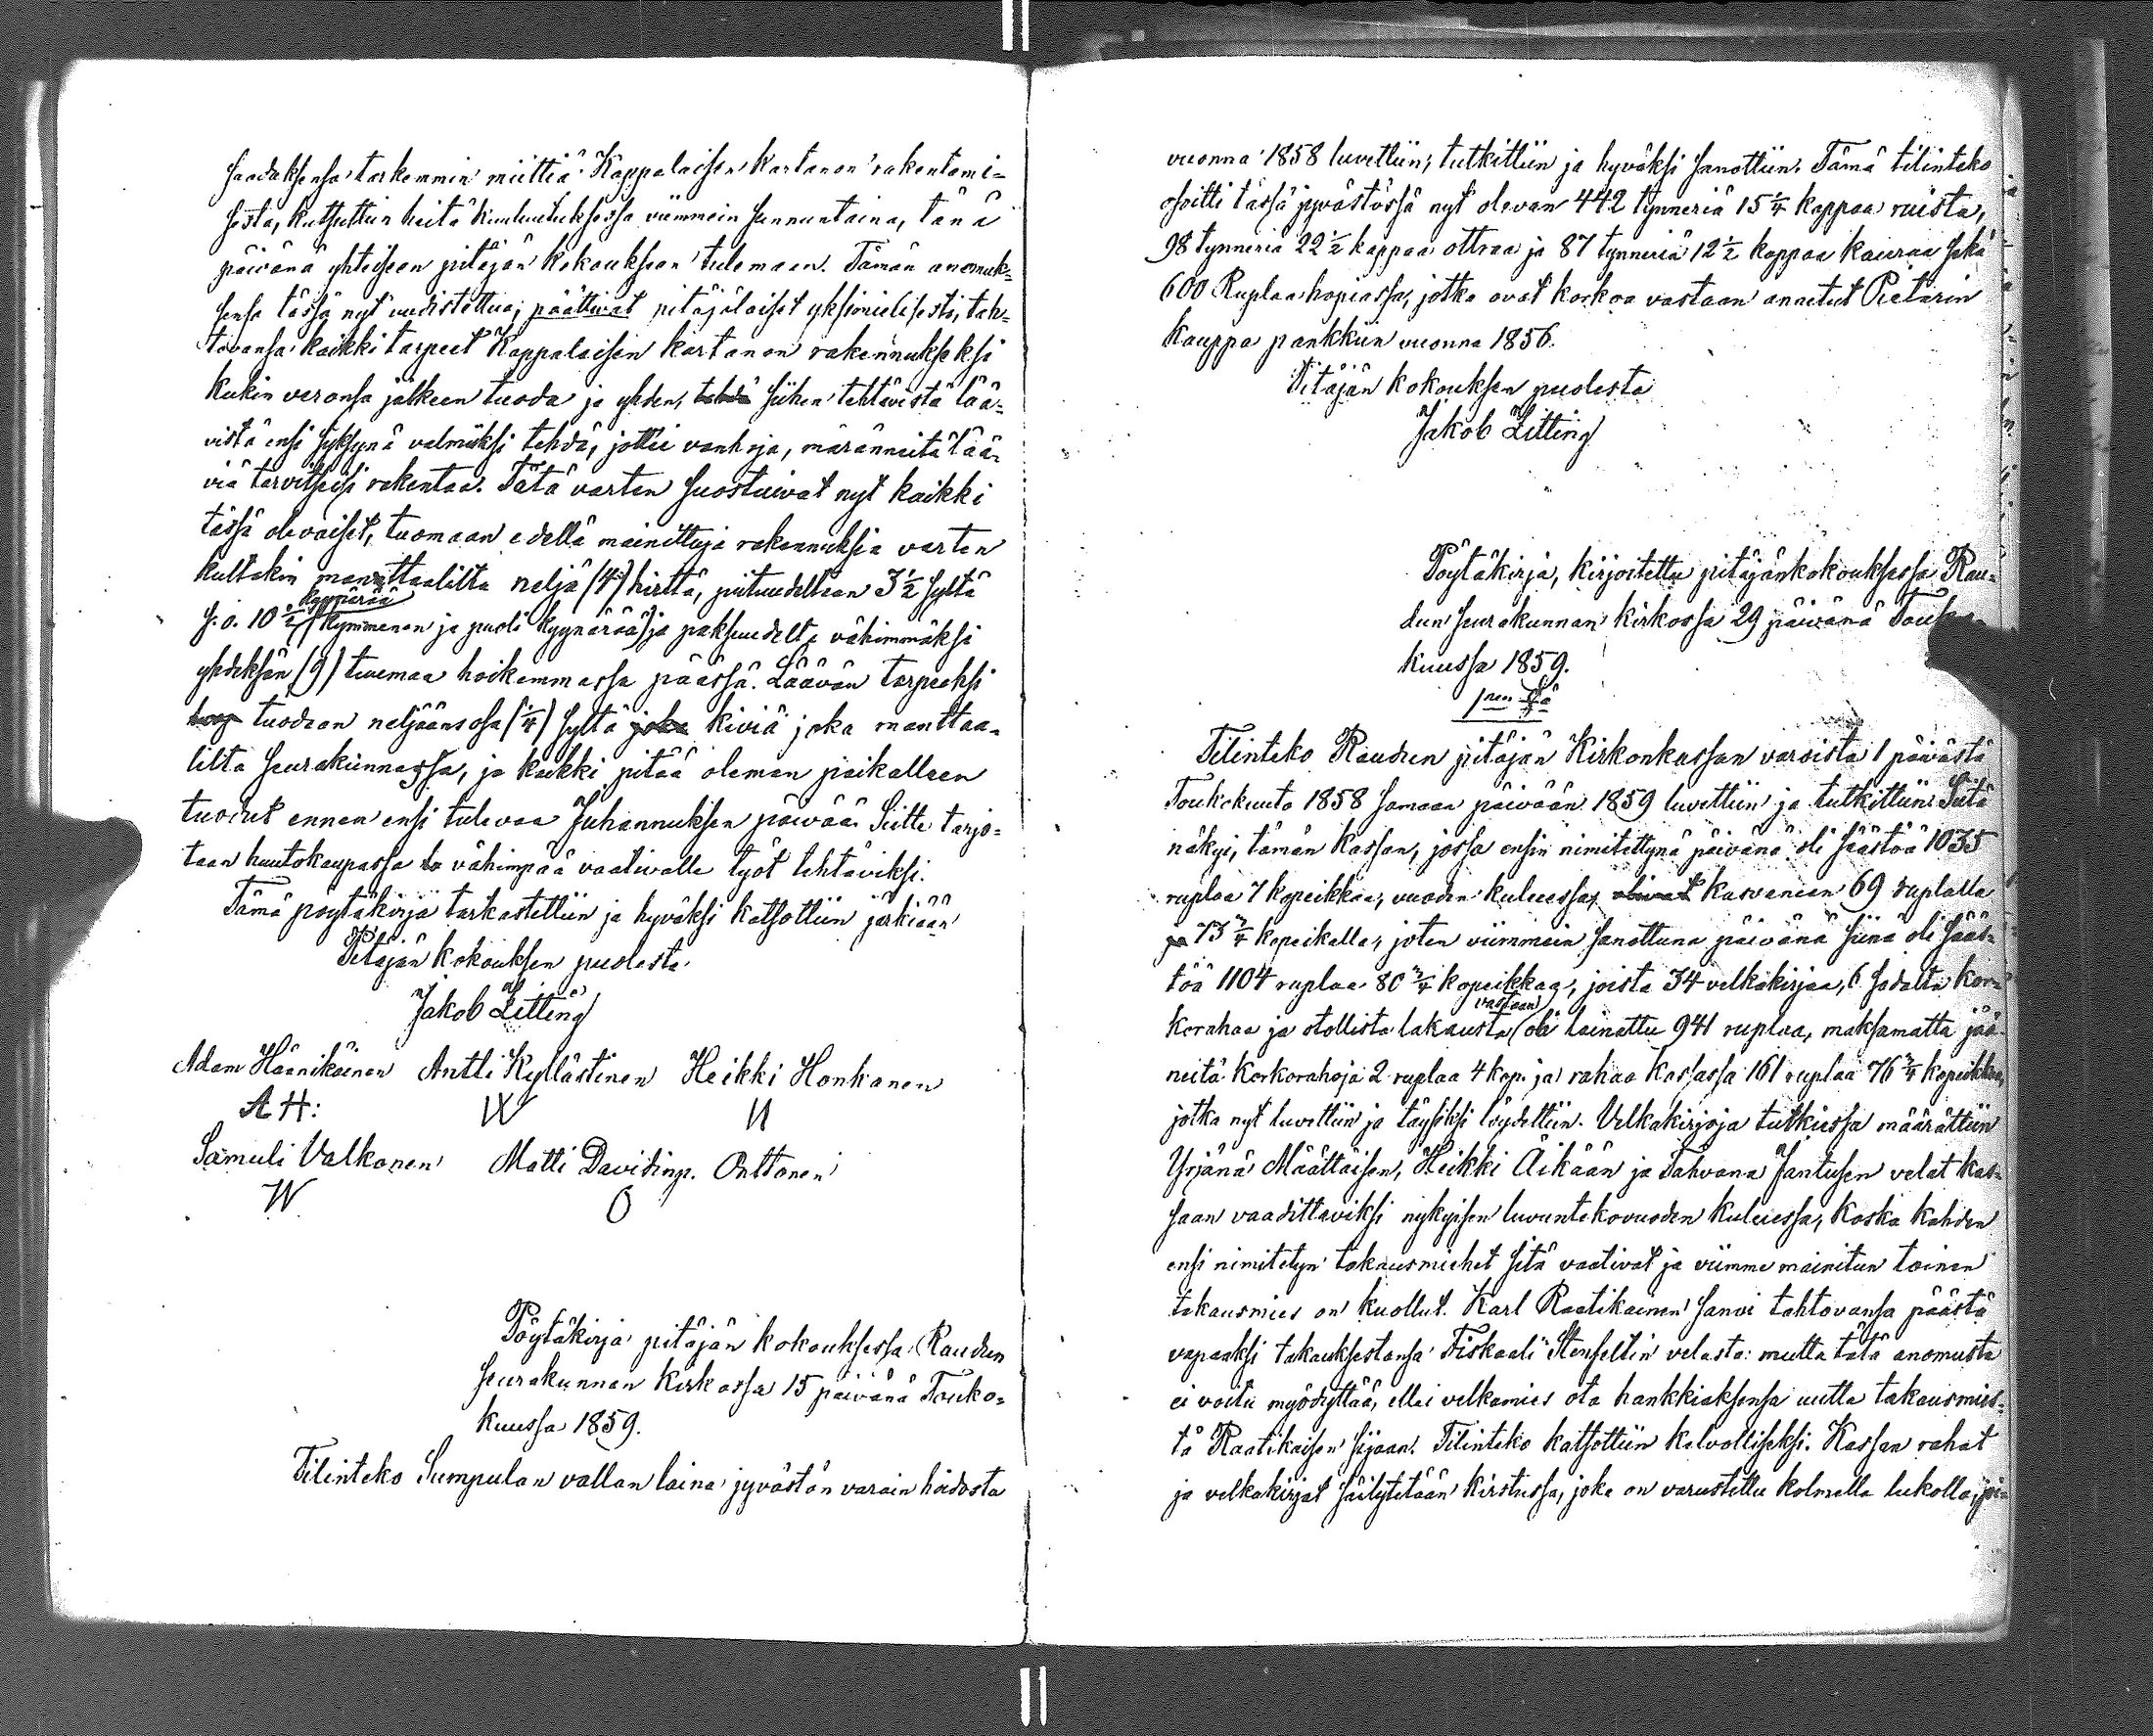 saadaksensa tarkemmin miettiä Kappalaisen kartanon rakentami=
sesta, kutsuttiin heitä kuulutuksessa viimmein sunnuntaina, tänä
päivänä yhteiseen pitäjän kokoukseen tulemaan. Tämän anomuk=
sensa tässä nyt uudistettua, päättivät pitäjäläiset yksimielisesti, tah=
tovansa kaikki tarpeet Kappalaisen kartanon rakennukseksi
kukin veronsa jälkeen tuoda ja yhden, tehdä siihen tehtävistä lää=
vistä ensi syksynä valmiiksi tehdä, jottei vanhoja, märänneitä lää=
viä tarvitseisi rakentaa. Tätä varten suostuivat nyt kaikki
tässä olevaiset, tuomaan edellä mainittuja rakennuksia varten
kultakin manttaalilta neljä (4) hirttä, pituudeltaan 3 1/2 syltä
kyynärää
s. o. 10 1/2 (kymmenen ja puoli kyynärää) ja paksuudelta vähimmäksi
yhdeksän (9) tuumaa hoikemmassa päässä. Läävän tarpeeksi
tuodaan neljäänsosa (1/4) syltä joka kiviä joka manttaa=
lilta seurakunnassa, ja kaikki pitää oleman paikallaen
tuodut ennen ensi tulevaa Juhannuksen päivää. Sitte tarjo=
taan huutokaupassa to vähimpää vaativalle työt tehtäviksi.
Tämä pöytäkirja tarkastettiin ja hyväksi katsottiin järkiään
Pitäjän kokouksen puolesta
Jakob Zitting
Adam Häänikäinen Antti Kyllästinen Heikki Honkanen
A H:
Samuli Valkonen Matti Davidinp. Onttonen
W O
Pöytäkirja pitäjän kokouksessa Raudun
seurakunnan kirkossa 15 päivänä Touko=
kuussa 1859.
Tilinteko Sumpulan vallan laina jyvästön varain hoidosta
vuonna 1858 luvettiin, tutkittiin ja hyväksi sanottiin. Tämä tilinteko
osoitti tässä jyvästössä nyt olevan 442 tynneriä 15 1/4 kappaa ruista,
98 tynneriä 22 1/2 kappaa ottraa ja 87 tynneriä 12 1/2 kappaa kauraa sekä
600 Ruplaa hopiassa, jotka ovat korkoa vastaan annetut Pietarin
kauppa pankkiin vuonna 1856.
Pitäjän kokouksen puolesta
Jakob Zitting
Pöytäkirja, kirjoitettu pitäjänkokouksessa Rau=
dun seurakunnan kirkossa 29 päivänä Touko
kuussa 1859.
Tilinteko Raudun pitäjän Kirkonkassan varoista 1 päivästä
Toukokuuta 1858 samaan päivään 1859 luvettiin ja tutkittiin. Siitä
näkyi, tämän kassan, jossa ensin nimitettynä päivänä oli säästöä 1035
ruplaa 7 kopeikkaa, vuoden kuluessa, olivat kasvaneen 69 ruplalla
ja 73 3/4 kopeikalla, joten viimmein sanottuna päivänä siinä oli sääs=
töä 1104 ruplaa 80 3/4 kopeikkaa, joista 34 velkakirjaa, 6 sadalta kor=
vastaan
korahaa ja otollista takausta oli lainattu 941 ruplaa, maksamatta jää
neitä korkorahoja 2 ruplaa 4 kop. ja rahaa kassassa 161 ruplaa 76 3/4 kopeikkaa,
jotka nyt luvettiin ja täysiksi löydettiin. Velkakirjoja tutkiessa määrättiin
Yrjänä Määttäisen, Heikki Äikään ja Tahvana Jantusen velat kas=
saan vaadittaviksi nykyisen luvuntekovuoden kuluessa, koska kahden
ensi nimitetyn takausmiehet sitä vaativat ja viimme mainitun toinen
takausmies on kuollut. Karl Raatikainen sanoi tahtovansa päästä
vapaaksi takauksestansa Fiskaali Stenseltin velasta: mutta tätä anomusta
ei voitu myödyttää, ellei velkamies ota hankkiaksensa uutta takausmies=
tä Raatikaisen sijaan. Tilinteko katsottiin kelvolliseksi. Kassan rahat
ja velkakirjat säilytetään kirstussa, joka on varustettu kolmella lukolla,